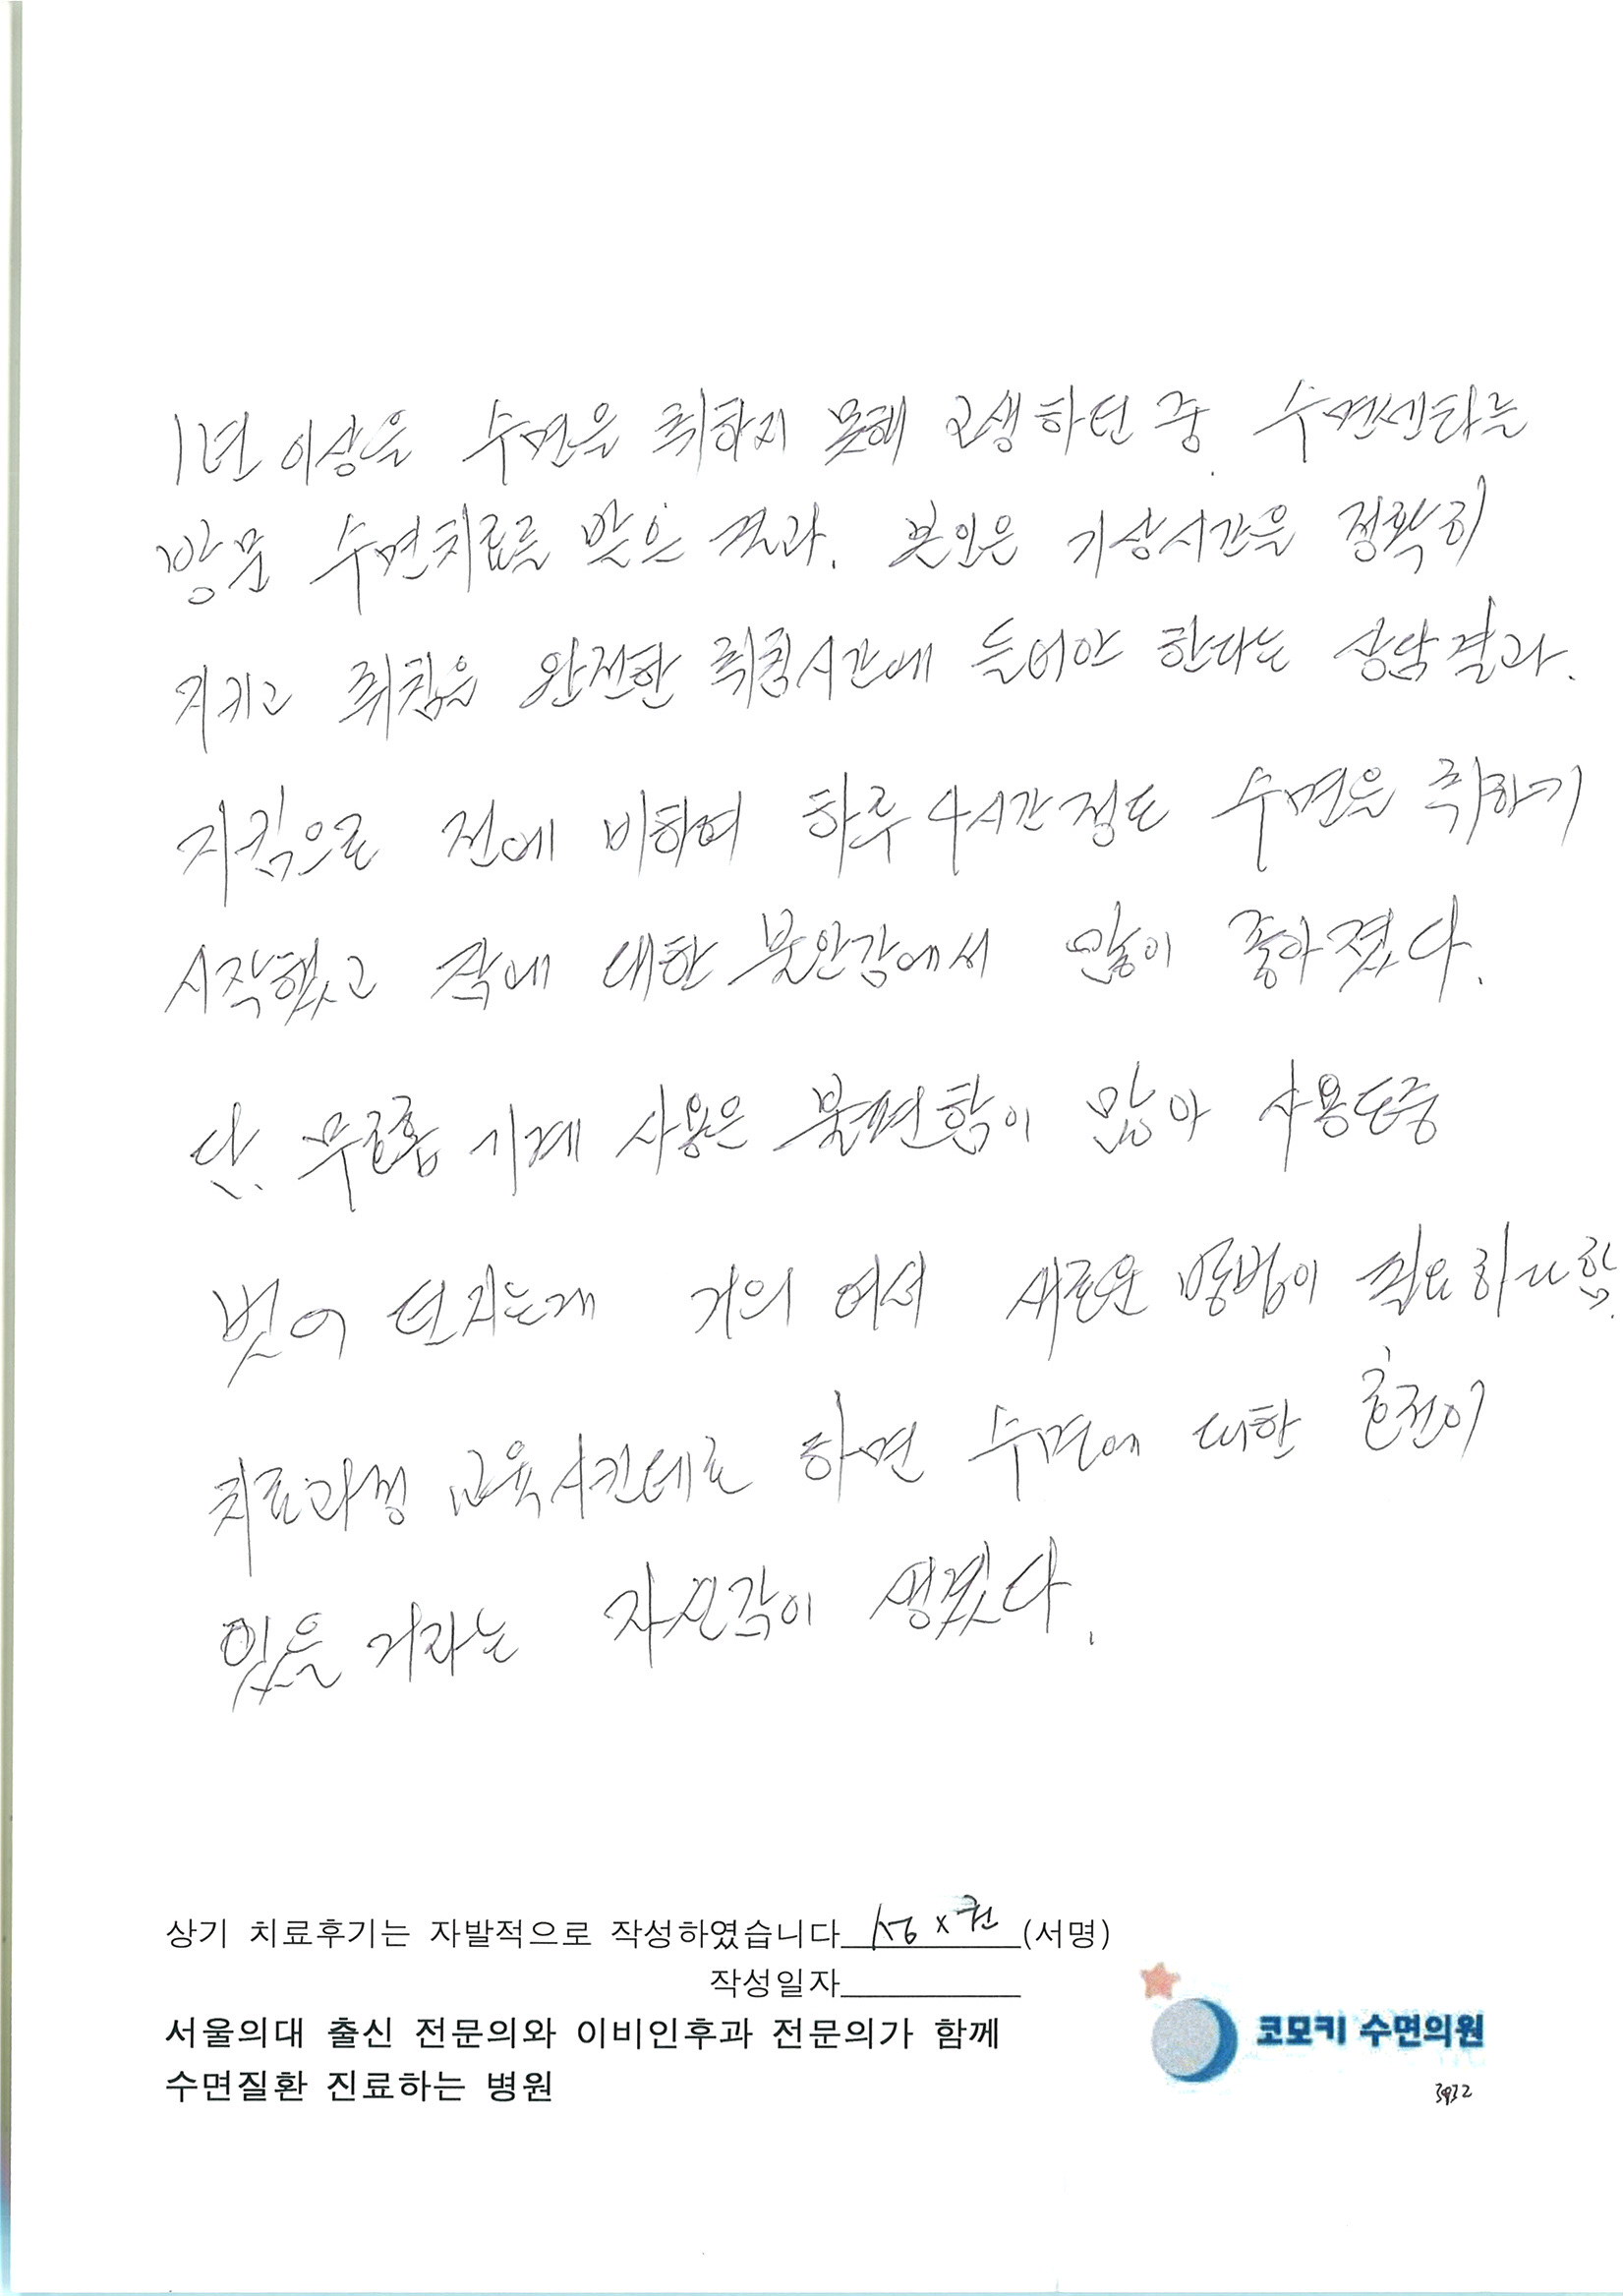 1년 이상을 수면을 취하지 못해 고생하던 중. 수면센타를
방문 수면치료를 받은 결과. 본인은 기상시간을 정확히
지키고 취침은 완전한 취침시간에 들어야 한다는 상담결과.
지킴으로 전에 비하여 하루 4시간정도 수면을 취하기
시작했고 잠에 대한 불안감에서 많이 좋아졌다.
단. 무호흡 기계 사용은 불편함이 많아 사용도중
벗어 던지는게 거의 여서 새로운 방법이 필요하다함.
치료과정 교육시킨데로 하면 수면에 대한 호전이
있을 거라는 자신감이 생겼다.
상기 치료후기는 자발적으로 작성하였습니다 (서명)
작성일자
서울의대 출신 전문의와 이비인후과 전문의가 함께
수면질환 진료하는 병원
코모키 수면의원
3932